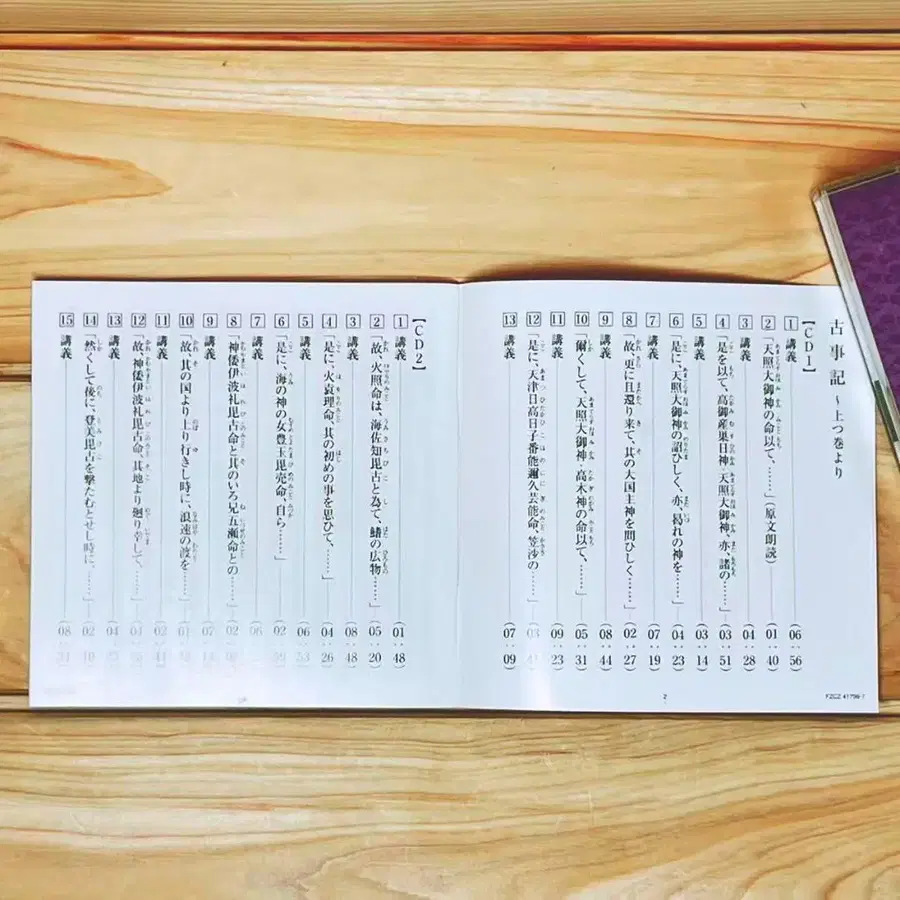 古事記 ～上つ巻より
【CD1】
1 講義……(06：56)
2 「天照大御神の命以て、……」（原文朗読）……(01：40)
3 講義……(04：28)
4 「是を以て、高御産巣日神・天照大御神、亦、諸の……」(03：51)
5 講義……(03：14)
6 「是に、天照大御神の詔ひしく、亦、曷れの神を……」(04：23)
7 講義……(07：19)
8 「故、更に且還り来て、其の大国主神を問ひしく……」(02：27)
9 講義……(08：44)
10 「爾くして、天照大御神・高木神の命以て、……」(05：31)
11 講義……(09：23)
12 「是に、天津日高日子番能邇々芸能命、笠沙の……」
13 講義……(07：09)
2
【CD2】
1 講義……(01：48)
2 「故、火照命は、海佐知毘古と為て、鰭の広物……」(05：20)
3 講義……(08：48)
4 「是に、火遠理命、其の初めの事を思ひて、……」(04：26)
5 講義……(06：53)
6 「是に、海の神の女豊玉毘売命、自ら……」(02：59)
7 講義
8 「神倭伊波礼毘古命と其のいろ兄五瀬命との……」
9 講義
10 「故、其の国より上り行きし時に、浪速の波を……」
11 講義
12 「故、神倭伊波礼毘古命、其地より廻り幸して、……」
13 講義
14 「然くして後に、登美毘古を撃たむとせし時に、……」
15 講義